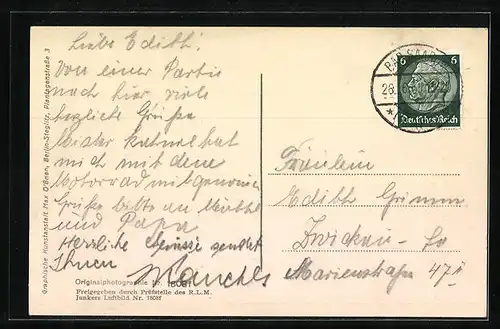 Liebe Edith!
Von einer Partie
nach hier viele
herzliche Grüße
Mister hat
mich mit dem
Motorrad mitgenommen
Grüße bitte an Mutter
und Papa
Herzliche Grüsse sendet
Ihnen
Fräulein
Edith Grimm
Zwickau - Sa
Marienstraße 47 II
BAD SAAR
28.
6 6
Deutsches Reich
Originalphotographie Nr. 18081
Freigegeben durch Prüfstelle des R.L.M.
Junkers Luftbild Nr. 18081
Graphische Kunstanstalt Max O'Brien, Berlin-Steglitz, Plantagenstraße 3